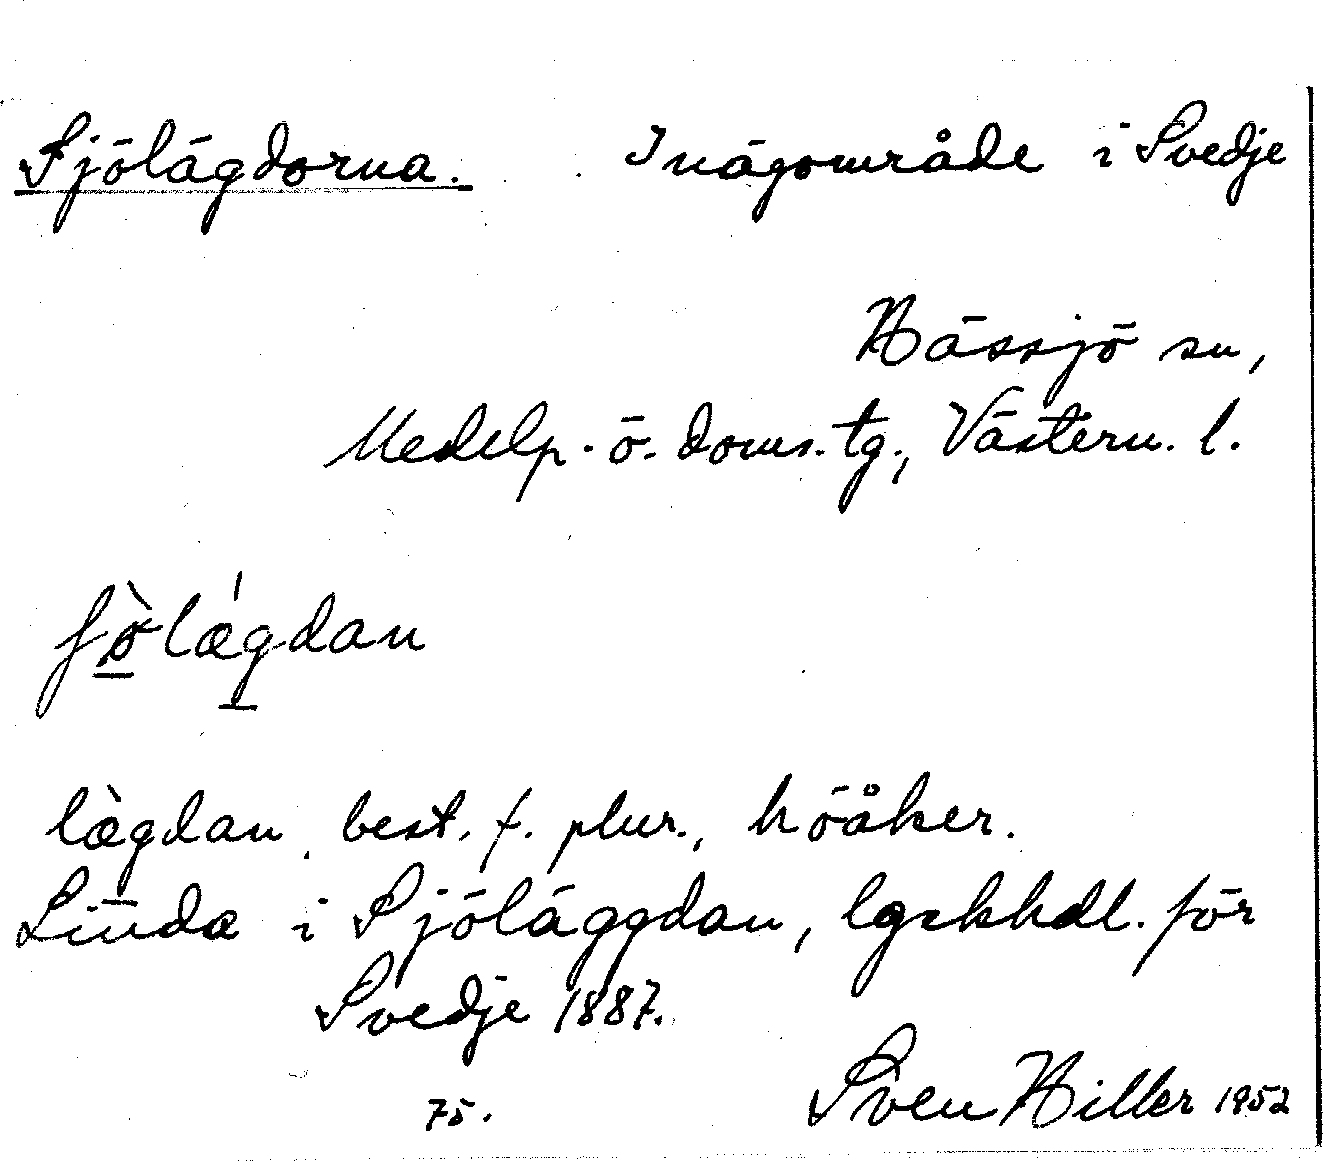 Sjölägdorna. Inägområde i Svedje
Hässjö sn,
Medelp. ö. doms.tg., Västern. l.
læ̀gdan, best. f. plur., höåker.
Linda i Sjöläggdan, lgskhdl. för
Svedje 1887.
75. Sven Hiller 1952